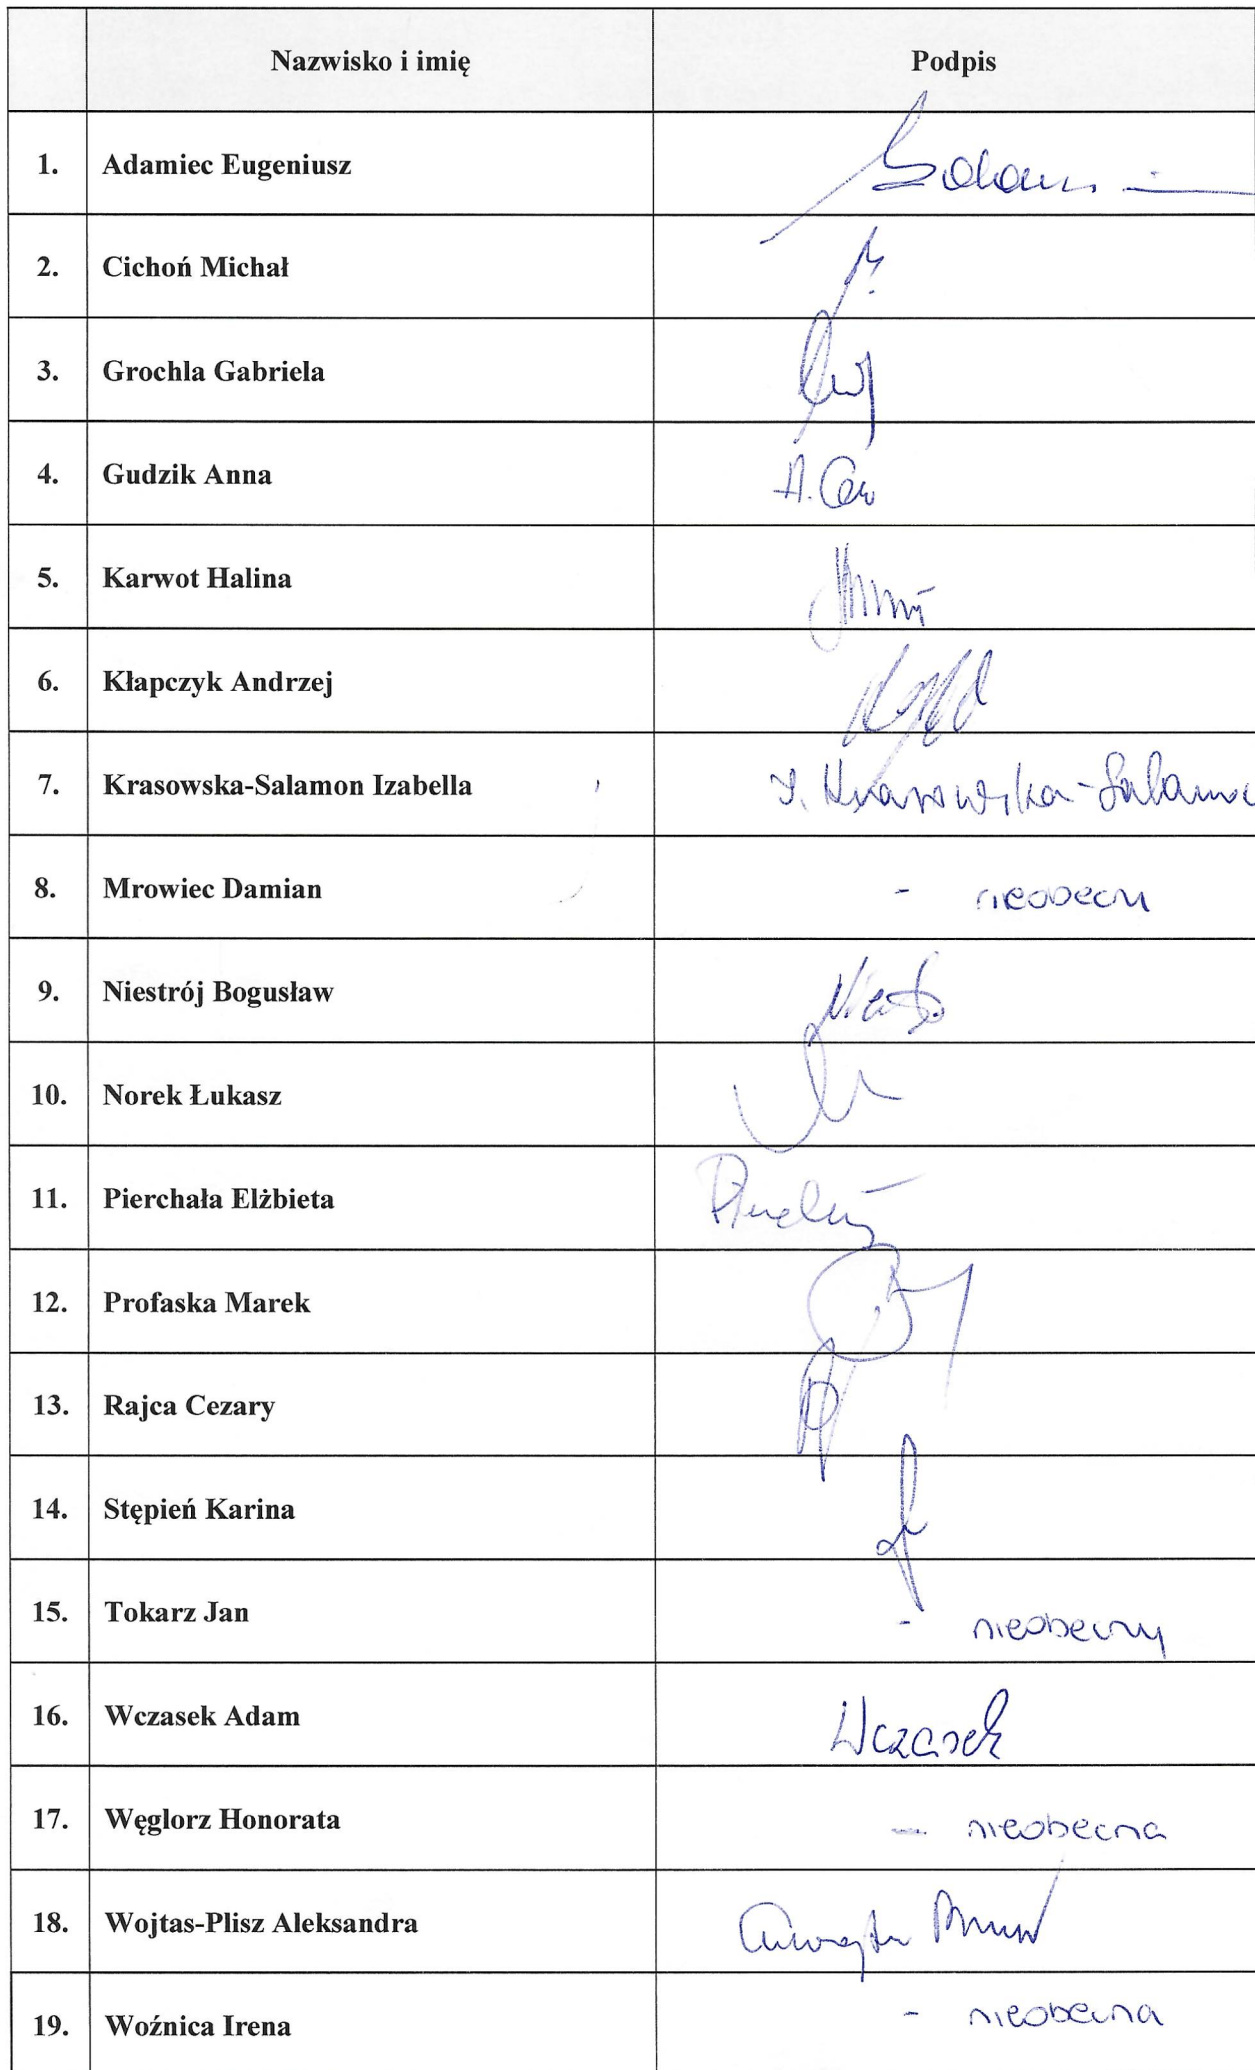 Nazwisko i imię Podpis
1. Adamiec Eugeniusz
2. Cichoń Michał
3. Grochla Gabriela
4. Gudzik Anna A.
5. Karwot Halina
6. Kłapczyk Andrzej
7. Krasowska-Salamon Izabella I. Krasowska-Salamo
8. Mrowiec Damian - nieobecn
9. Niestrój Bogusław
10. Norek Łukasz
11. Pierchała Elżbieta
12. Profaska Marek
13. Rajca Cezary
14. Stępień Karina
15. Tokarz Jan - nieobecny
16. Wczasek Adam Wczasek
17. Węglorz Honorata - nieobecna
18. Wojtas-Plisz Aleksandra
19. Woźnica Irena - nieobecna